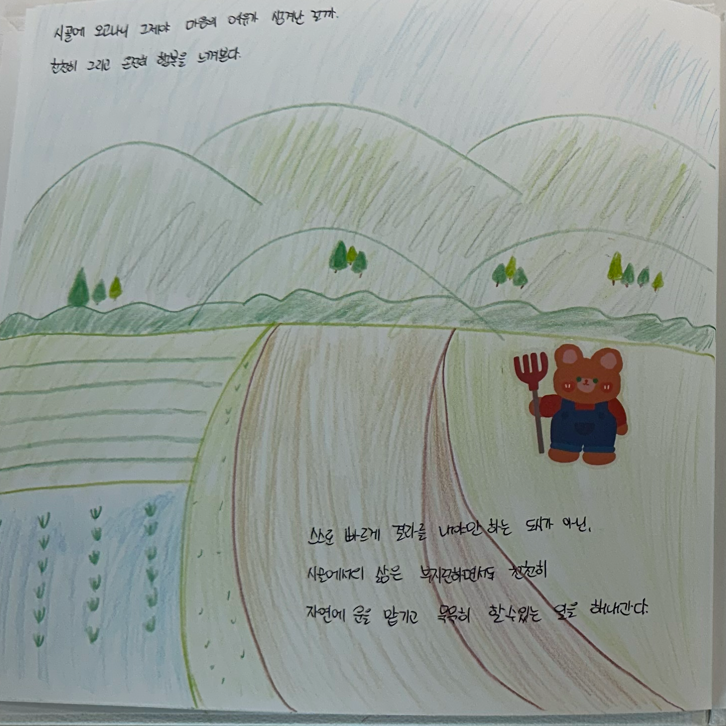 시골에 오고나니 그제야 마음의 여유가 생겨난 걸까.
천천히 그리고 온전히 행복을 느껴본다.
스스로 빠르게 결과를 내야만 하는 도시가 아닌,
시골에서의 삶은 부지런하면서도 천천히
자연에 운을 맡기고 묵묵히 할 수 있는 일을 해나간다.